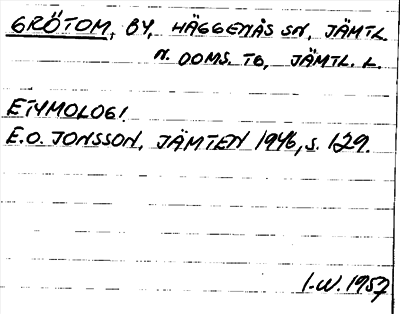 GRÖTOM, BY, HÄGGENÅS SN, JÄMTL.
N. DOMS. TB, JÄMTL. L.
ETYMOLOGI
E.O. JONSSON, JÄMTEN 1946, S. 129.
I.W. 1957